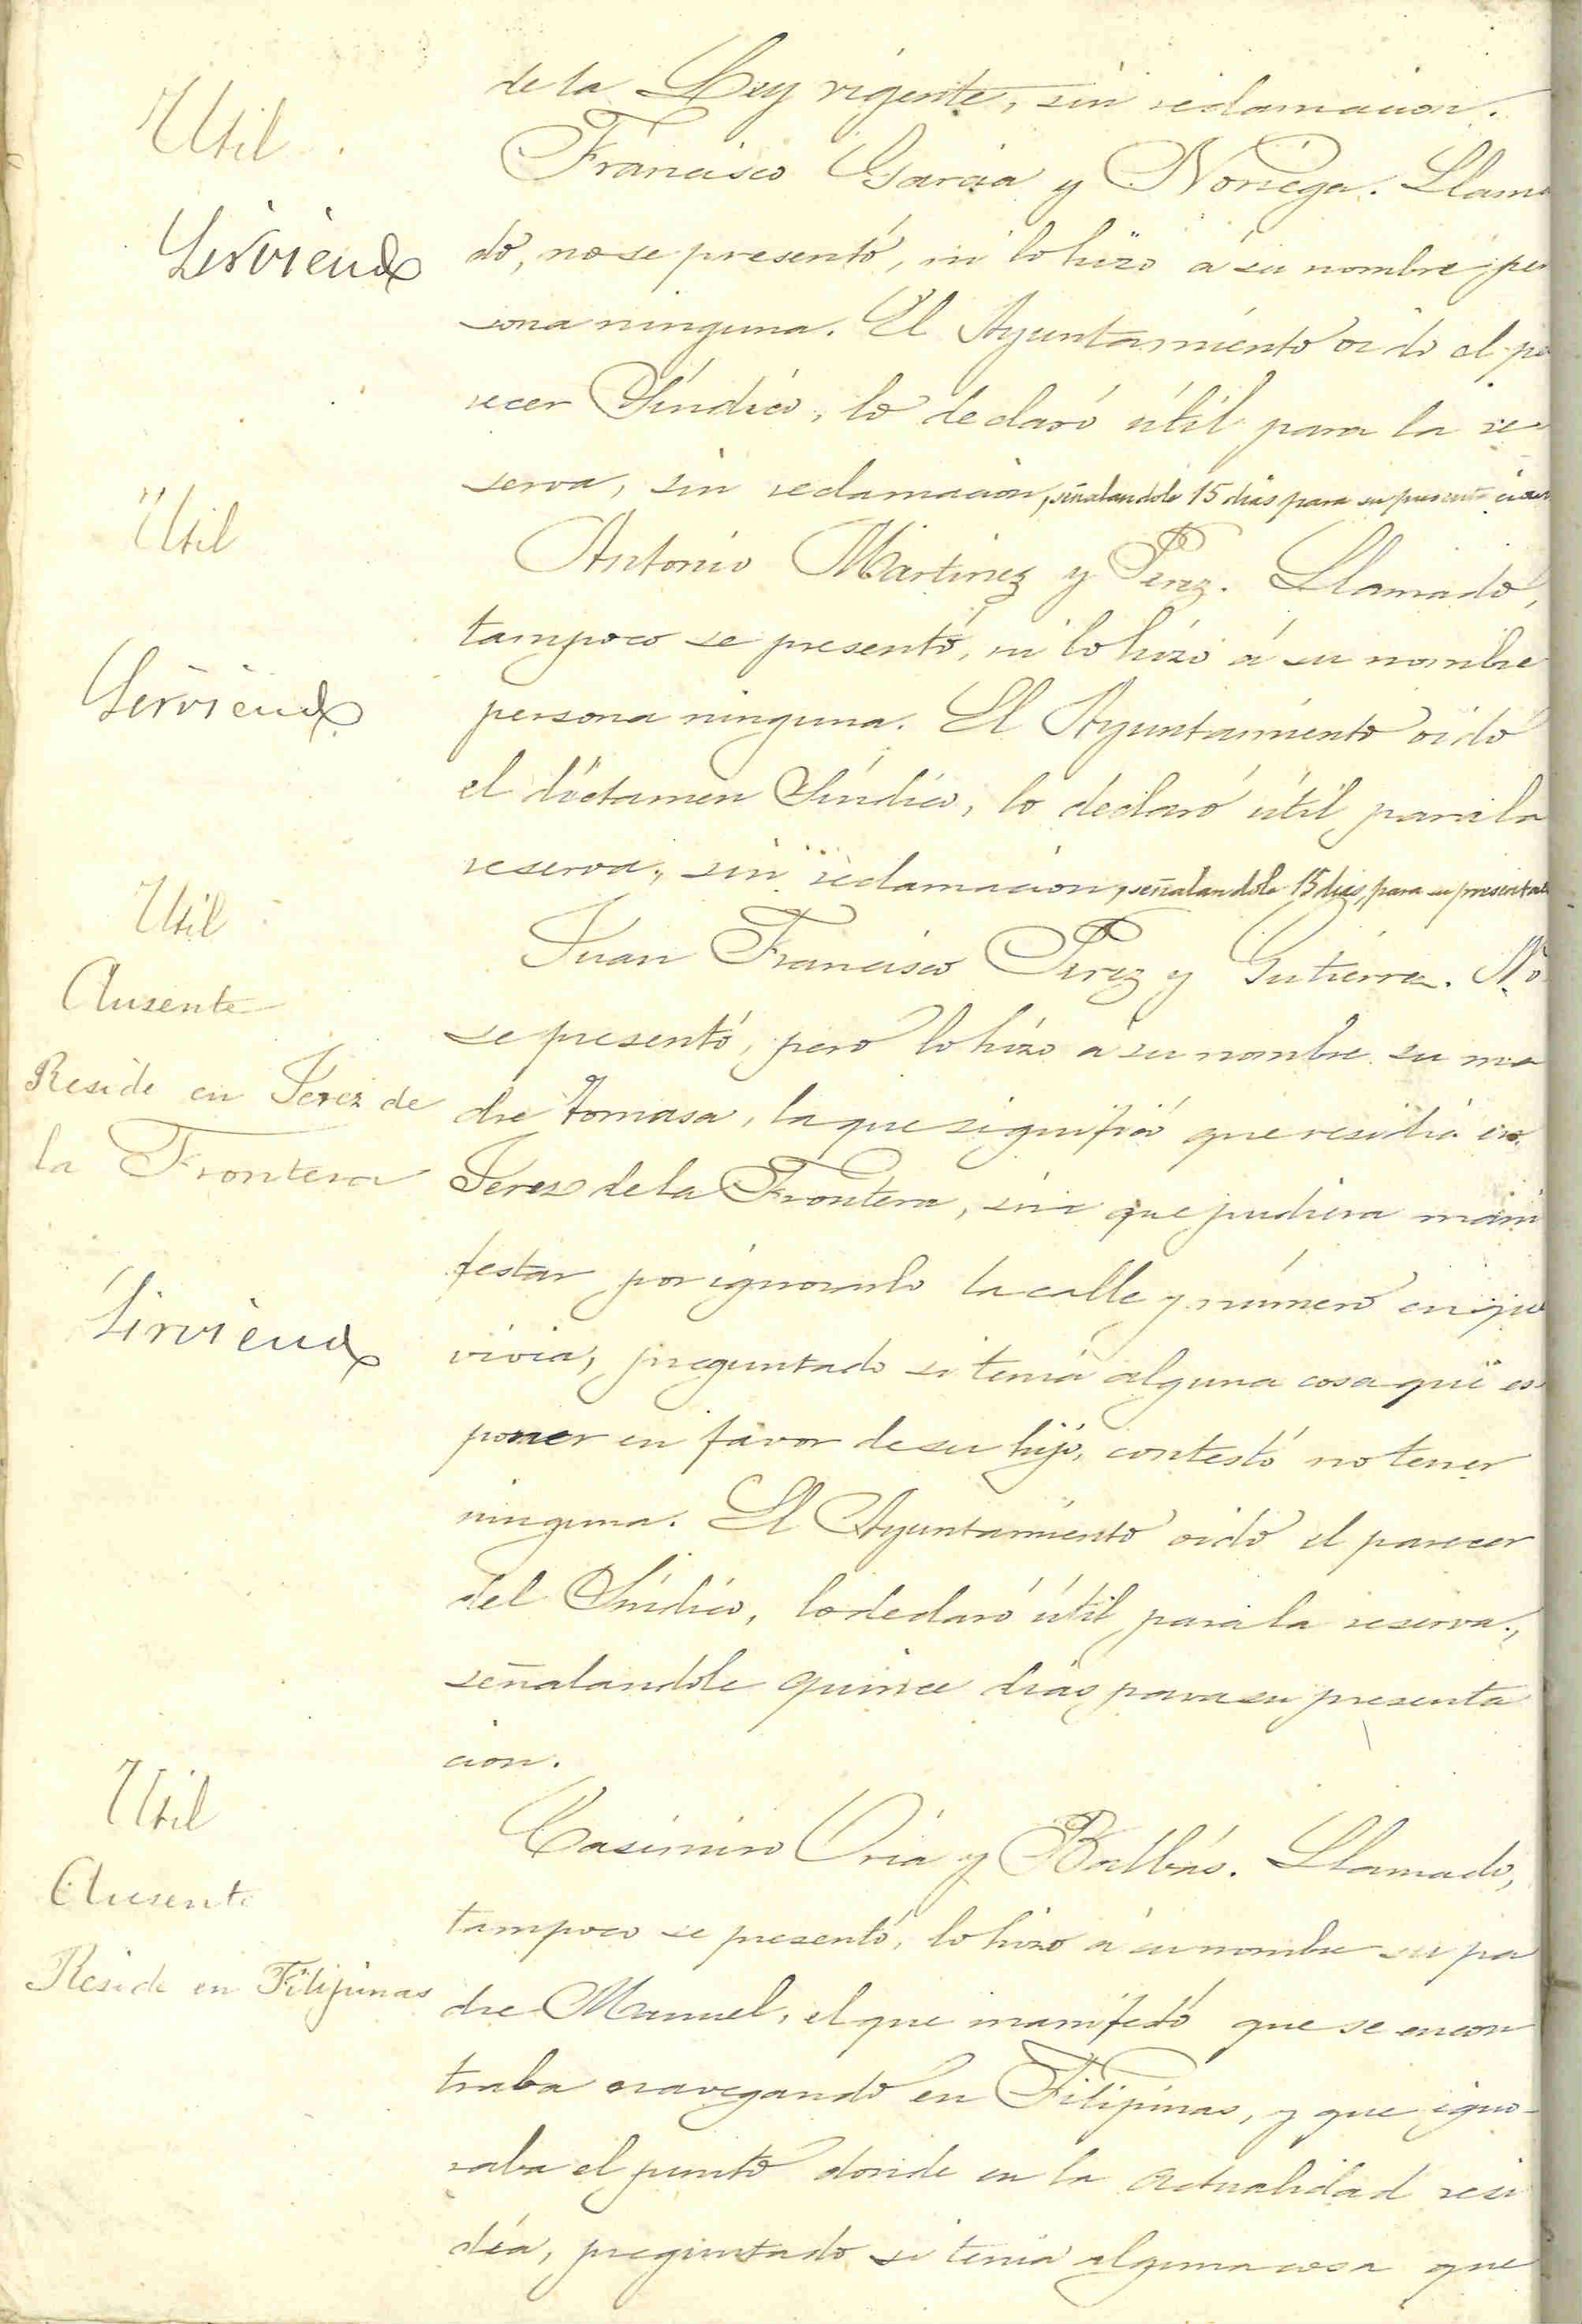 de la Ley vigente, sin reclamacion.
Util
Francisco Garcia y Noriega. Llama
Sirviendo
do, no se presentó, ni lo hizo á su nombre per
sona ninguna. El Ayuntamiento oido el pa
recer Síndico, lo declaró útil para la re-
serva, sin reclamacion, señalandole 15 dias para su presentacion
Util
Antonio Martinez y Perez. Llamado,
tampoco se presentó, ni lo hizo á su nombre
Sirviendo
persona ninguna. El Ayuntamiento oido
el dictamen Síndico, lo declaró útil para la
reserva, sin reclamacion, señalandole 15 dias para su presentac
Util
Juan Francisco Perez y Gutierrez. No
Ausente
se presentó, pero lo hizo a su nombre su ma
Reside en Jerez de
dre Tomasa, la que significó que residia en
la Frontera
Jerez de la Frontera, sin que pudiera mani
festar por ignorarlo la calle y número en que
Sirviendo
vivia, preguntado si tenia alguna cosa que es
poner en favor de su hijo, contestó no tener
ninguna. El Ayuntamiento oido el parecer
del Síndico, lo declaró útil para la reserva,
señalandole quince dias para su presenta
cion.
Util
Casimiro Oria y Balbás. Llamado,
Ausente
tampoco se presentó, lo hizo a su nombre su pa
Reside en Filipinas
dre Manuel, el que manifestó que se encon
traba navegando en Filipinas, y que igno-
raba el punto donde en la actualidad resi
día, preguntado si tenia alguna cosa que